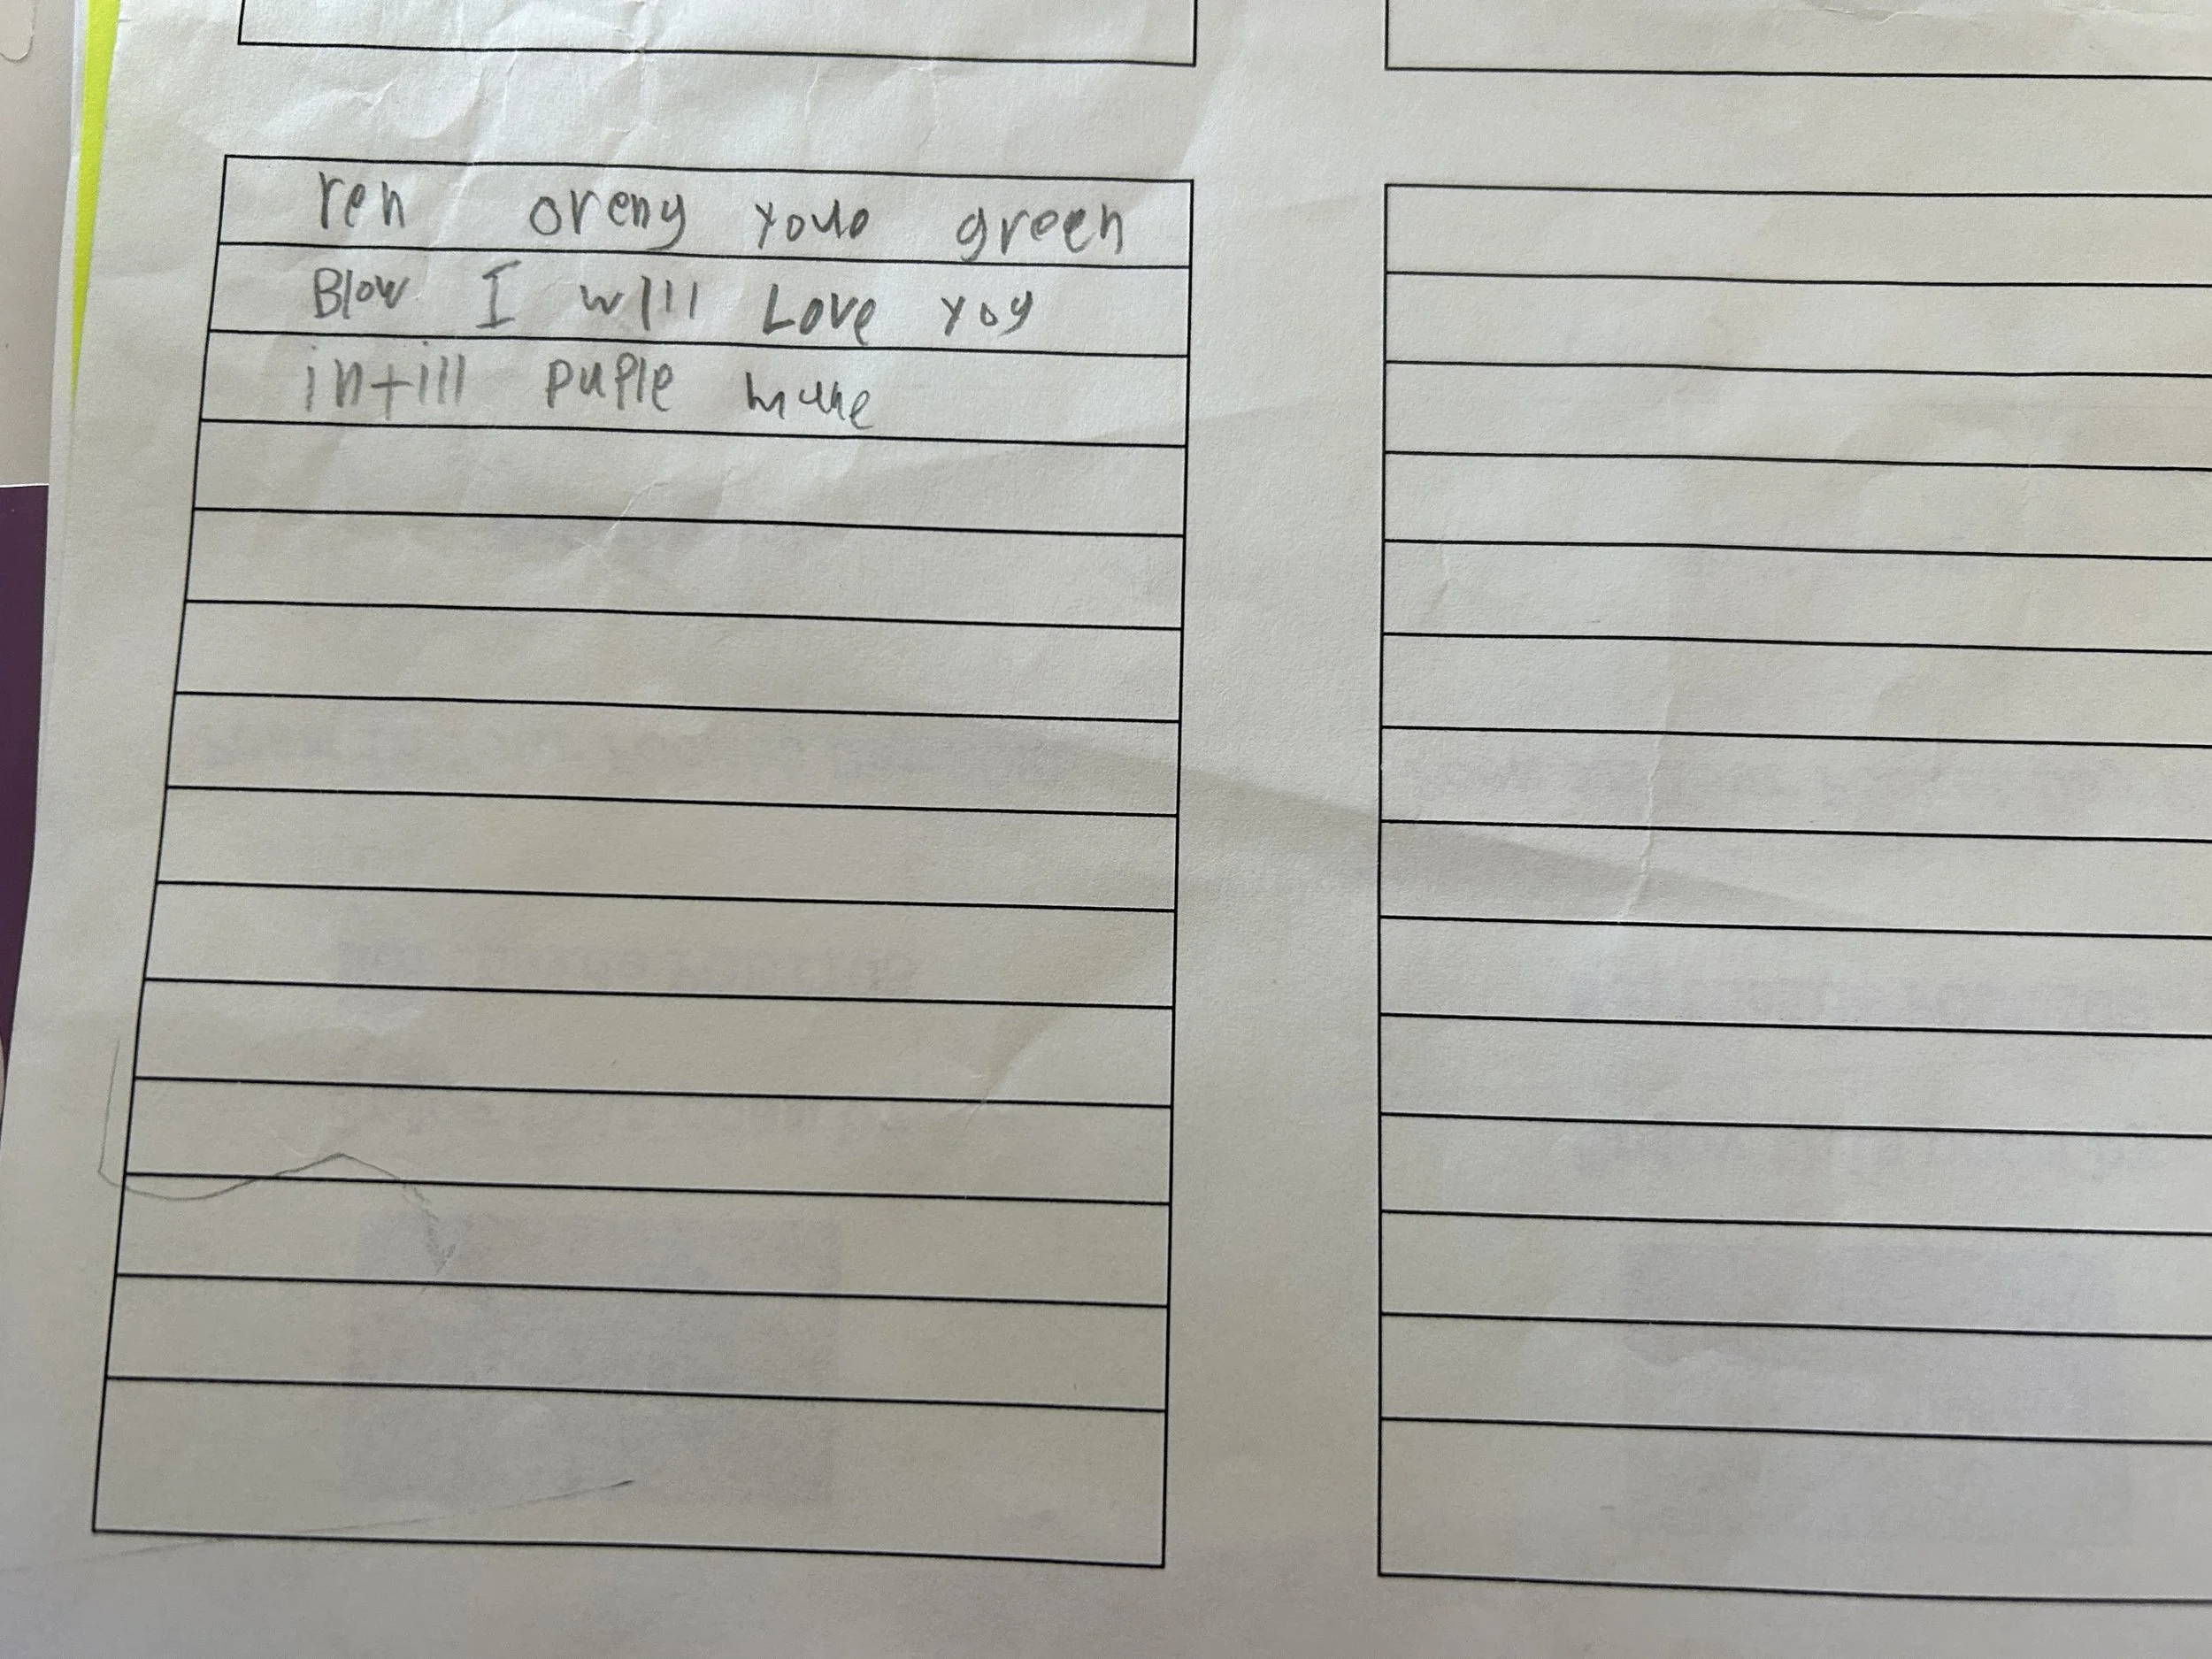 ren oreny youo green
Blow I will Love yoy
intill puple